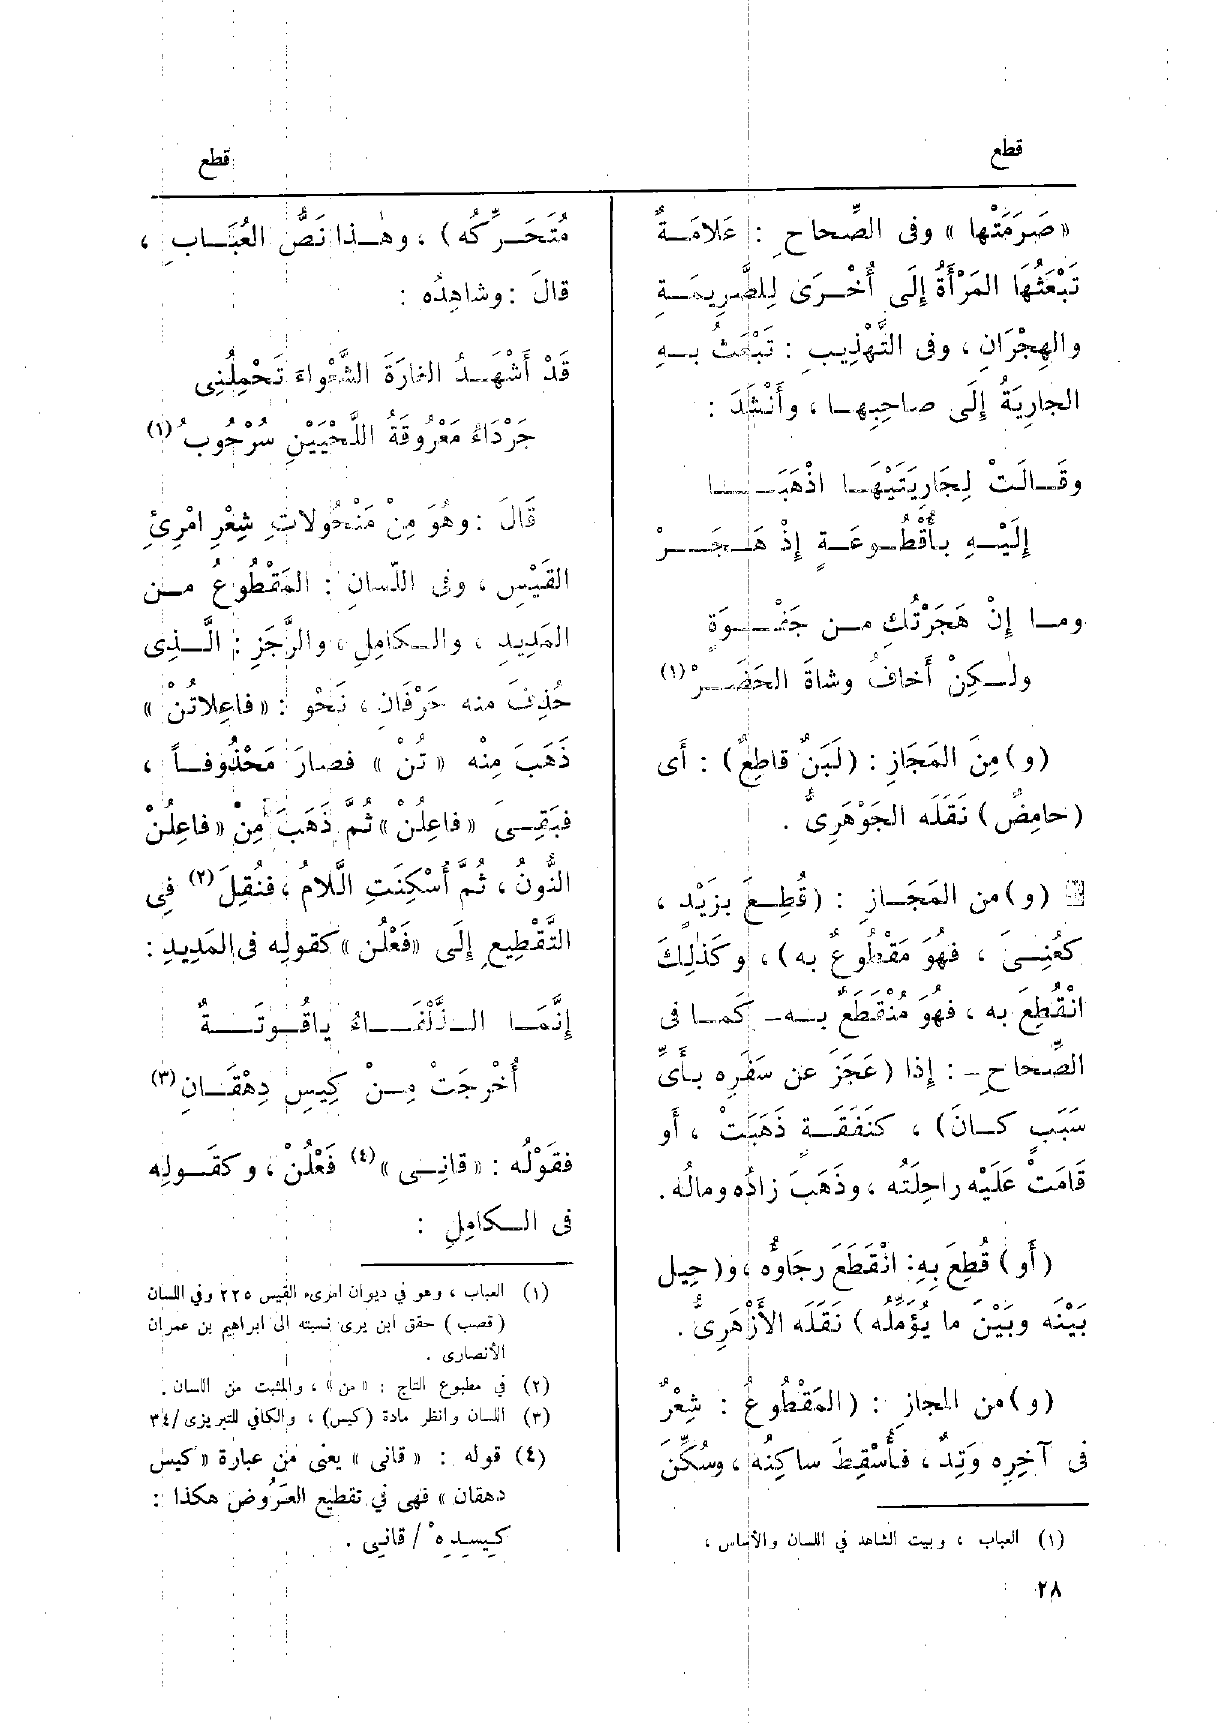 قطع
قطع
«صَرَمَتْها» وفى الصِّحاحِ : عَلامَةٌ
تَبْعَثُهَا المَرْأَةُ إِلَى أُخْرَى لِلصَّرِيمَةِ
والهِجْرَانِ ، وفى التَّهْذِيبِ : تَبْعَثُ بِهِ
الجارِيَةُ إِلَى صاحِبِها ، وأَنْشَدَ :
وقَالَتْ لِجَارِيَتَيْهَا اذْهَبَا
إِلَيْهِ بأُقْطُوعَةٍ إِذْ هَجَرْ
وما إِنْ هَجَرْتُكِ من جَفْوَةٍ
ولٰكِنْ أَخافُ وشاةَ الحَضَرْ (١)
(و) مِنَ المَجَازِ : (لَبَنٌ قاطِعٌ) : أَى
(حامِضٌ) نَقَلَه الجَوْهَرِىُّ .
(و) من المَجَازِ : (قُطِعَ بزَيْدٍ ،
كعُنِىَ ، فهُوَ مَقْطُوعٌ به) ، وكَذٰلِكَ
انْقُطِعَ به ، فهُوَ مُنْقَطَعٌ به – كَما فى
الصِّحاحِ – : إِذا (عَجَزَ عن سَفَرِه بأَىِّ
سَبَبٍ كانَ) ، كنَفَقَةٍ ذَهَبَتْ ، أَو
قَامَتْ عَلَيْه راحِلَتُه ، وذَهَبَ زادُه ومالُه .
(أَو) قُطِعَ بِهِ : انْقَطَعَ رجَاؤُه ، و(حِيل
بَيْنَه وبَيْنَ ما يُؤَمِّلُه) نَقَلَه الأَزْهَرِىُّ .
(و) من المجازِ : (المَقْطُوعُ : شِعْرٌ
فى آخِرِه وَتِدٌ ، فأُسْقِطَ ساكِنُه ، وسُكِّنَ
(١) العباب ، وبيت الشاهد في اللسان والأساس ،
٢٨
مُتَحَرِّكُه) ، وهٰذا نَصُّ العُبَابِ ،
قالَ : وشاهِدُه :
قَدْ أَشْهَدُ الغارَةَ الشَّعْواءَ تَحْمِلُنِى
جَرْدَاءُ مَعْرُوقَةُ اللَّحْيَيْنِ سُرْحُوبُ (١)
قَالَ : وهُوَ مِنْ مَنْحُولاتِ شِعْرِ امْرِئِ
القَيْسِ ، وفى اللّسانِ : المَقْطُوعُ من
المَدِيدِ ، والكامِلِ ، والرَّجَزِ : الَّذِى
حُذِفَ منه حَرْفَانِ ، نَحْو : «فاعِلاتُنْ»
ذَهَبَ مِنْه «تُنْ» فصارَ مَحْذُوفاً ،
فبَقِىَ «فاعِلُنْ» ثُمَّ ذَهَبَ مِنْ «فاعِلُنْ
النُّونُ ، ثُمَّ أُسْكِنَتِ اللَّامُ ، فنُقِلَ (٢) فِى
التَّقْطِيعِ إِلَى «فَعْلُن» كقولِه فى المَدِيدِ :
إِنَّمَا الذَّلْفَاءُ ياقُوتَةٌ
أُخْرِجَتْ مِنْ كِيسِ دِهْقَانِ (٣)
فقَوْلُه : «قانِى» (٤) فَعْلُنْ ، وكقَولِه
فى الكامِلِ :
(١) العباب ، وهو في ديوان امرىء القيس ٢٢٥ وفي اللسان
(قصب) حقق ابن برى نسبته الى ابراهيم بن عمران
الأنصارى .
(٢) في مطبوع التاج : «من» ، والمثبت من اللسان .
(٣) اللسان وانظر مادة (كيس) ، والكافي للتبريزى/٣٤
(٤) قوله : «قانى» يعنى من عبارة «كيس
دهقان» فهى في تقطيع العَرُوض هكذا :
كيسِدِهْ / قانِى .